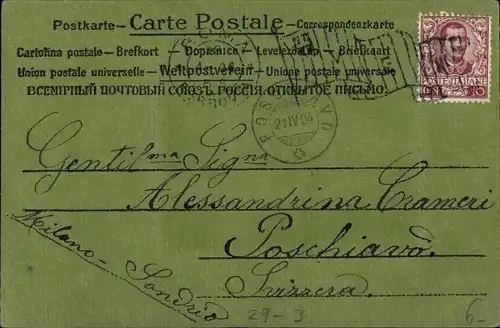 Postkarte – Carte Postale – Correspondenzkarte
Cartolina postale – Brefkort – Dopisnice – Levelezőlap – Briefkaart
Union postale universelle – Weltpostverein – Unione postale universale
ВСЕМІРНЫЙ ПОЧТОВЫЙ СОЮЗЪ РОССІЯ ОТКРЫТОЕ ПИСЬМО.
POSTE ITALIANE
CENT. 10
POSCHIAVO
21 IV 04
Gentilma Signa
Alessandrina Crameri
Poschiavo
Svizzera
Milano - Sondrio
29-3
6-